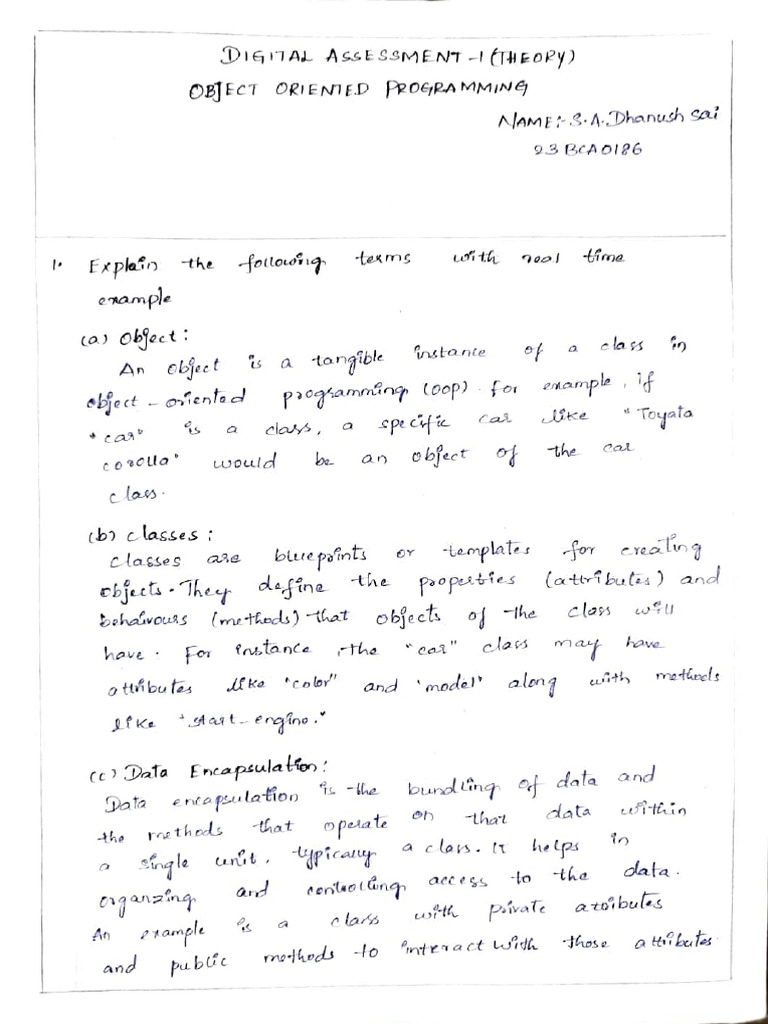 DIGITAL ASSESSMENT -1 (THEORY)
OBJECT ORIENTED PROGRAMMING
NAME:- S.A.Dhanush Sai
23BCA0186
1. Explain the following terms with real time
example
(a) Object:
An object is a tangible instance of a class in
object-oriented programming (OOP). For example, if
"car" is a class, a specific car like "Toyata
corolla" would be an object of the car
class.
(b) classes:
Classes are blueprints or templates for creating
objects. They define the properties (attributes) and
behaivours (methods) that objects of the class will
have. For instance, the "car" class may have
attributes like "color" and "model" along with methods
like "start-engine."
(c) Data Encapsulation:
Data encapsulation is the bundling of data and
the methods that operate on that data within
a single unit, typically a class. It helps in
organzing and controlling access to the data.
An example is a class with private attributes
and public methods to interact with those attributes.